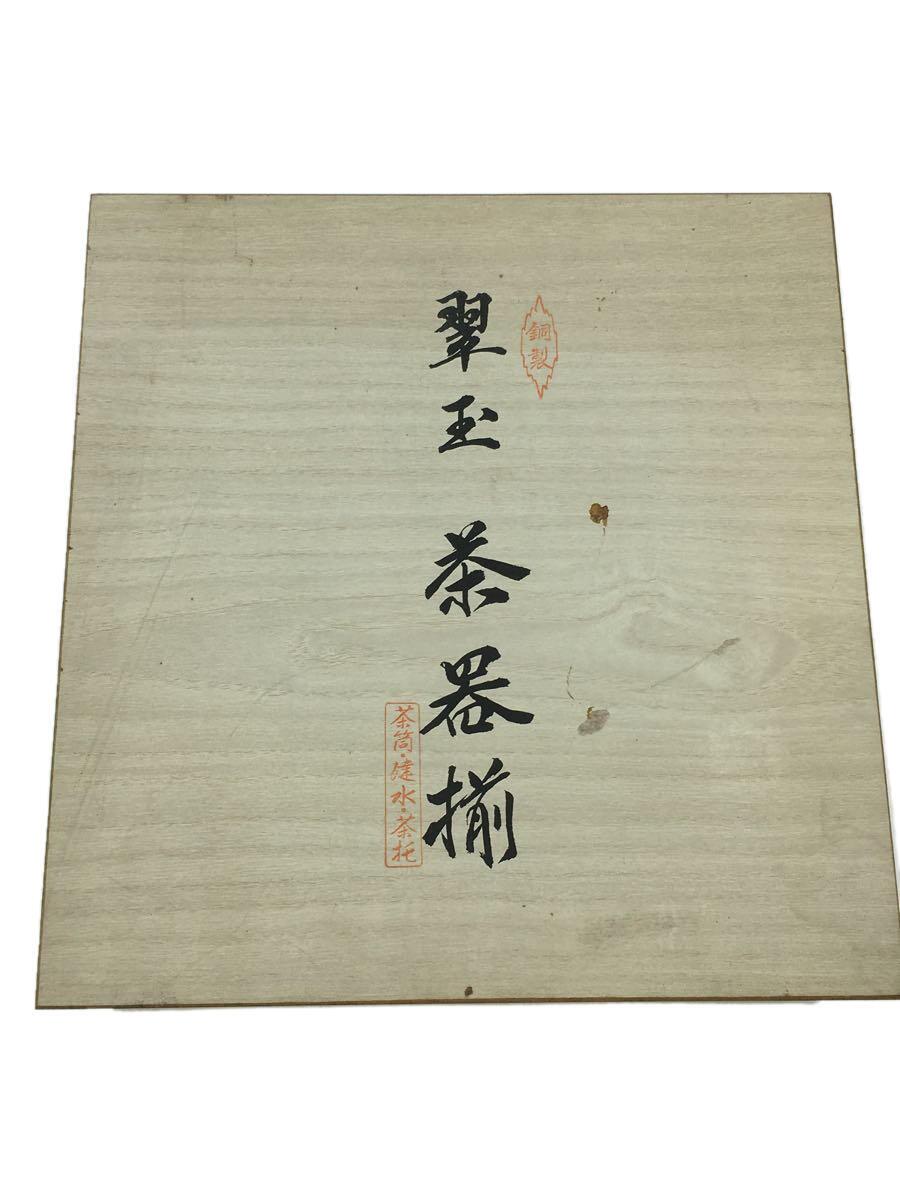 銅製
翠玉 茶器揃
茶筒・建水・茶托